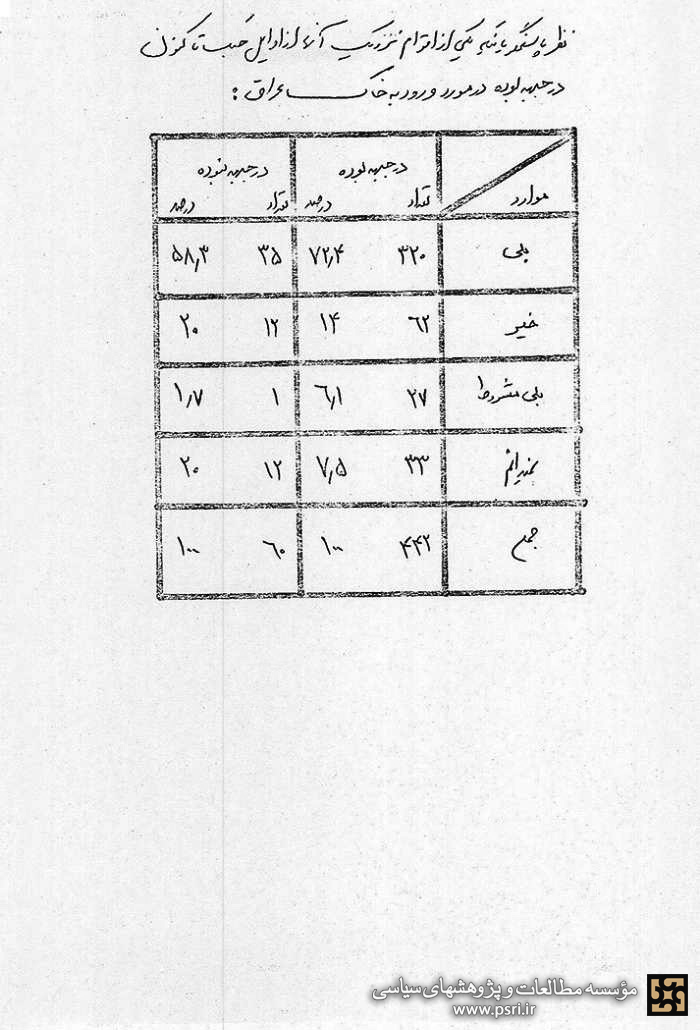 نظر پاسخگویانیکه یکی از اقوام نزدیک آنها از اوایل جنگ تا کنون
در جبهه بوده در مورد ورود به خاک عراق :
موارد در جبهه بوده در جبهه نبوده
تعداد درصد تعداد درصد
بلی ۳۲۰ ۷۲٫۴ ۳۵ ۵۸٫۳
خیر ۶۲ ۱۴ ۱۲ ۲۰
بلی مشروط ۲۷ ۶٫۱ ۱ ۱٫۷
نمیدانم ۳۳ ۷٫۵ ۱۲ ۲۰
جمع ۴۴۲ ۱۰۰ ۶۰ ۱۰۰
مؤسسه مطالعات و پژوهشهای سیاسی
www.psri.ir